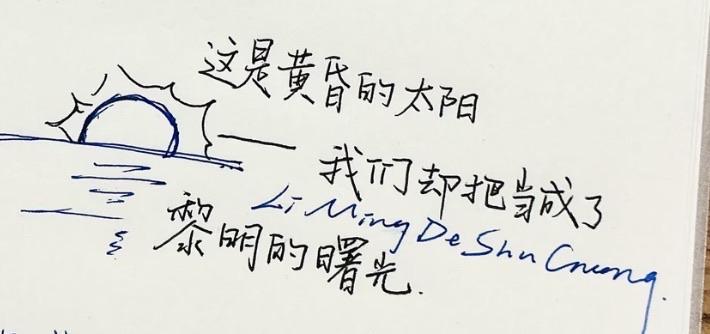 这是黄昏的太阳
——我们却把当成了
Li Ming De Shu Guang.
黎明的曙光.